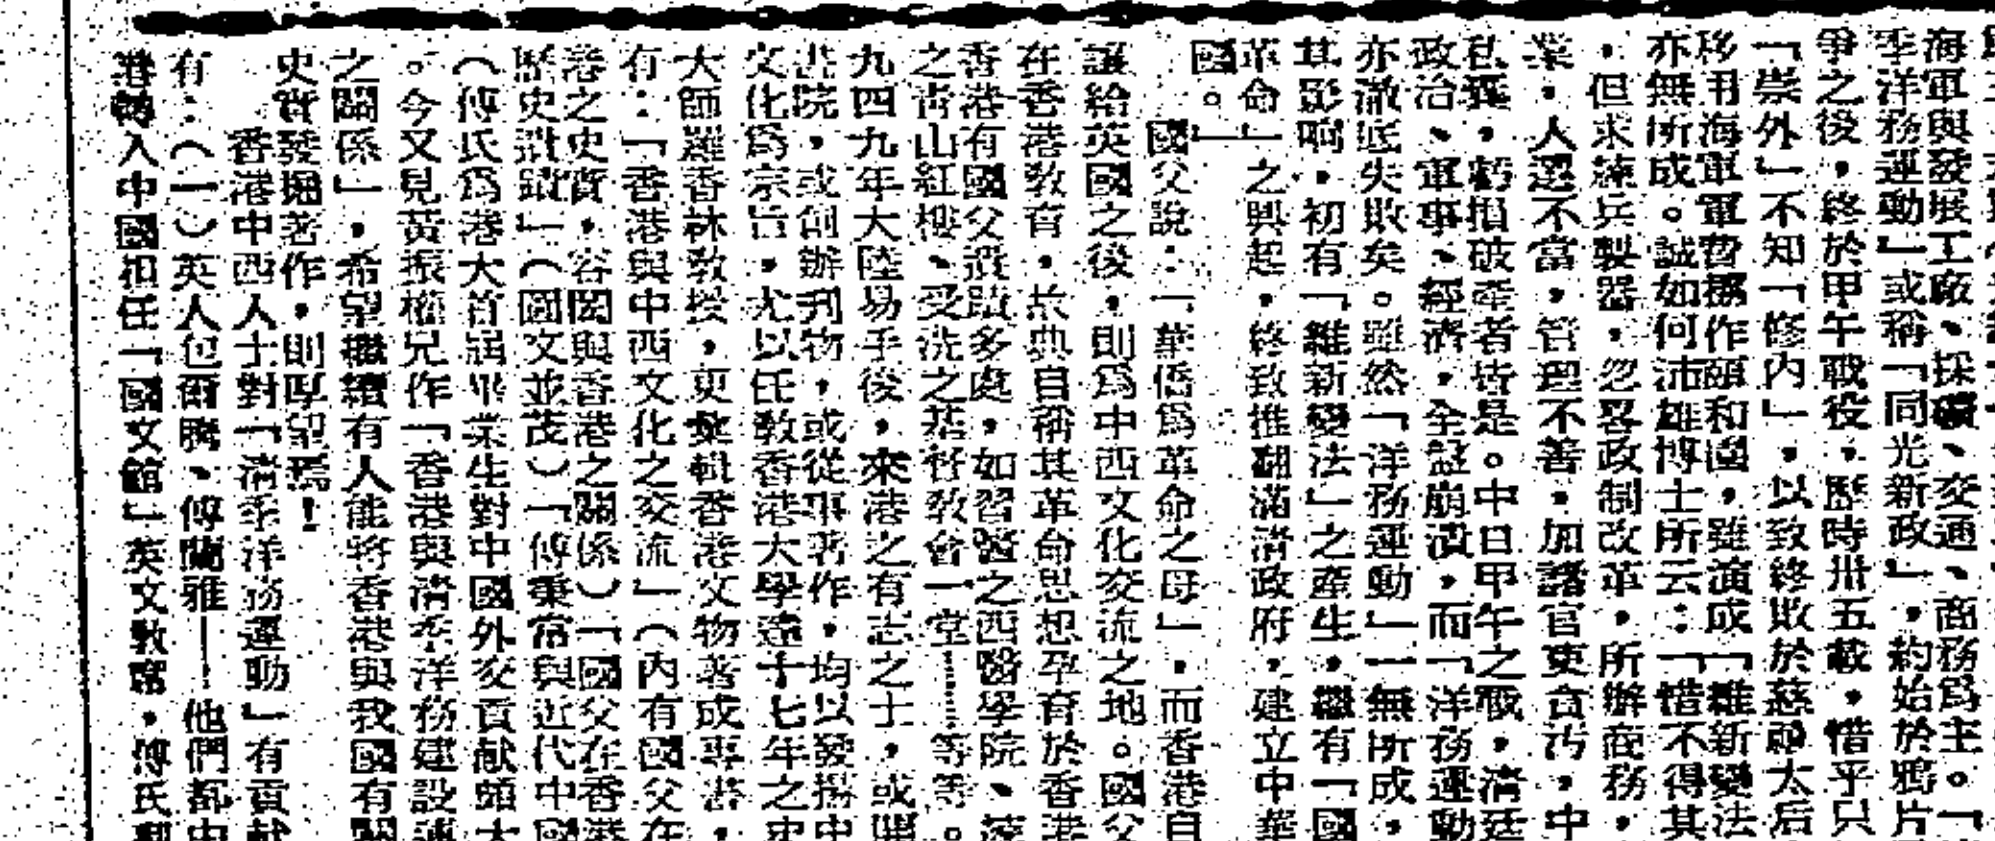 海軍與發展工廠、採礦、交通、商務爲主。「
季洋務運動」或稱「同光新政」，約始於鴉片
爭之後，終於甲午戰役，歷時卅五載，惜乎只
「崇外」不知「修內」，以致終敗於慈禧太后
移用海軍軍費撥作頤和園，雖演成「維新變法
亦無所成。誠如何沛雄博士所云：「惜不得其
，但求練兵製器，忽畧政制改革，所辦商務，
業，人選不當，管理不善，加諸官吏貪汚，中
私囊，虧損破產者皆是。中日甲午之戰，清廷
政治、軍事、經濟，全盤崩潰，而「洋務運動
亦澈底失敗矣。雖然「洋務運動」一無所成，
其影响，初有「維新變法」之產生，繼有「國
革命」之興起，終致推翻滿清政府，建立中華
國。」
國父說：「華僑爲革命之母」，而香港自
讓給英國之後，則爲中西文化交流之地。國父
在香港敎育，於典自稱其革命思想孕育於香港
香港有國父遺蹟多處，如習醫之西醫學院、
之靑山紅樓、受洗之基督敎會一堂………等等。
九四九年大陸易手後，來港之有志之士，或開
書院，或創辦刊物，或從事著作，均以發揚中
文化爲宗旨，尤以任敎香港大學達十七年之史
大師羅香林敎授，更彙輯香港文物著成專書，
有：「香港與中西文化之交流」（內有國父在
港之史實，容閎與香港之關係）「國父在香港
歷史遺蹟」（圖文並茂）「傅秉常與近代中國
（傅氏爲港大首屆畢業生對中國外交貢献頗大
。今又見黃振權兄作「香港與清季洋務建設運
之關係」，希望繼續有人能將香港與我國有關
史實發掘著作，則厚望焉！
香港中西人士對「清季洋務運動」有貢献
有：（一）英人包爾騰、傅蘭雅——他們都由
港轉入中國扣任「國文館」英文敎席，傅氏